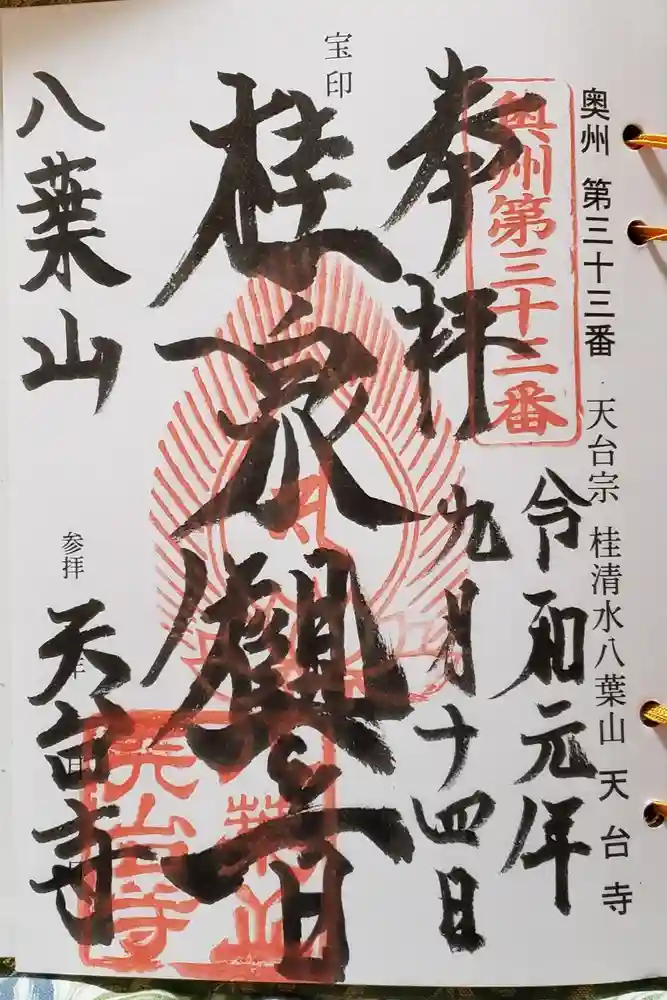 奥州 第三十三番 天台宗 桂清水八葉山 天台寺
奥州第三十三番
奉拝
令和元年
九月十四日
宝印
桂泉観音
八葉山
参拝
天台寺
天台寺